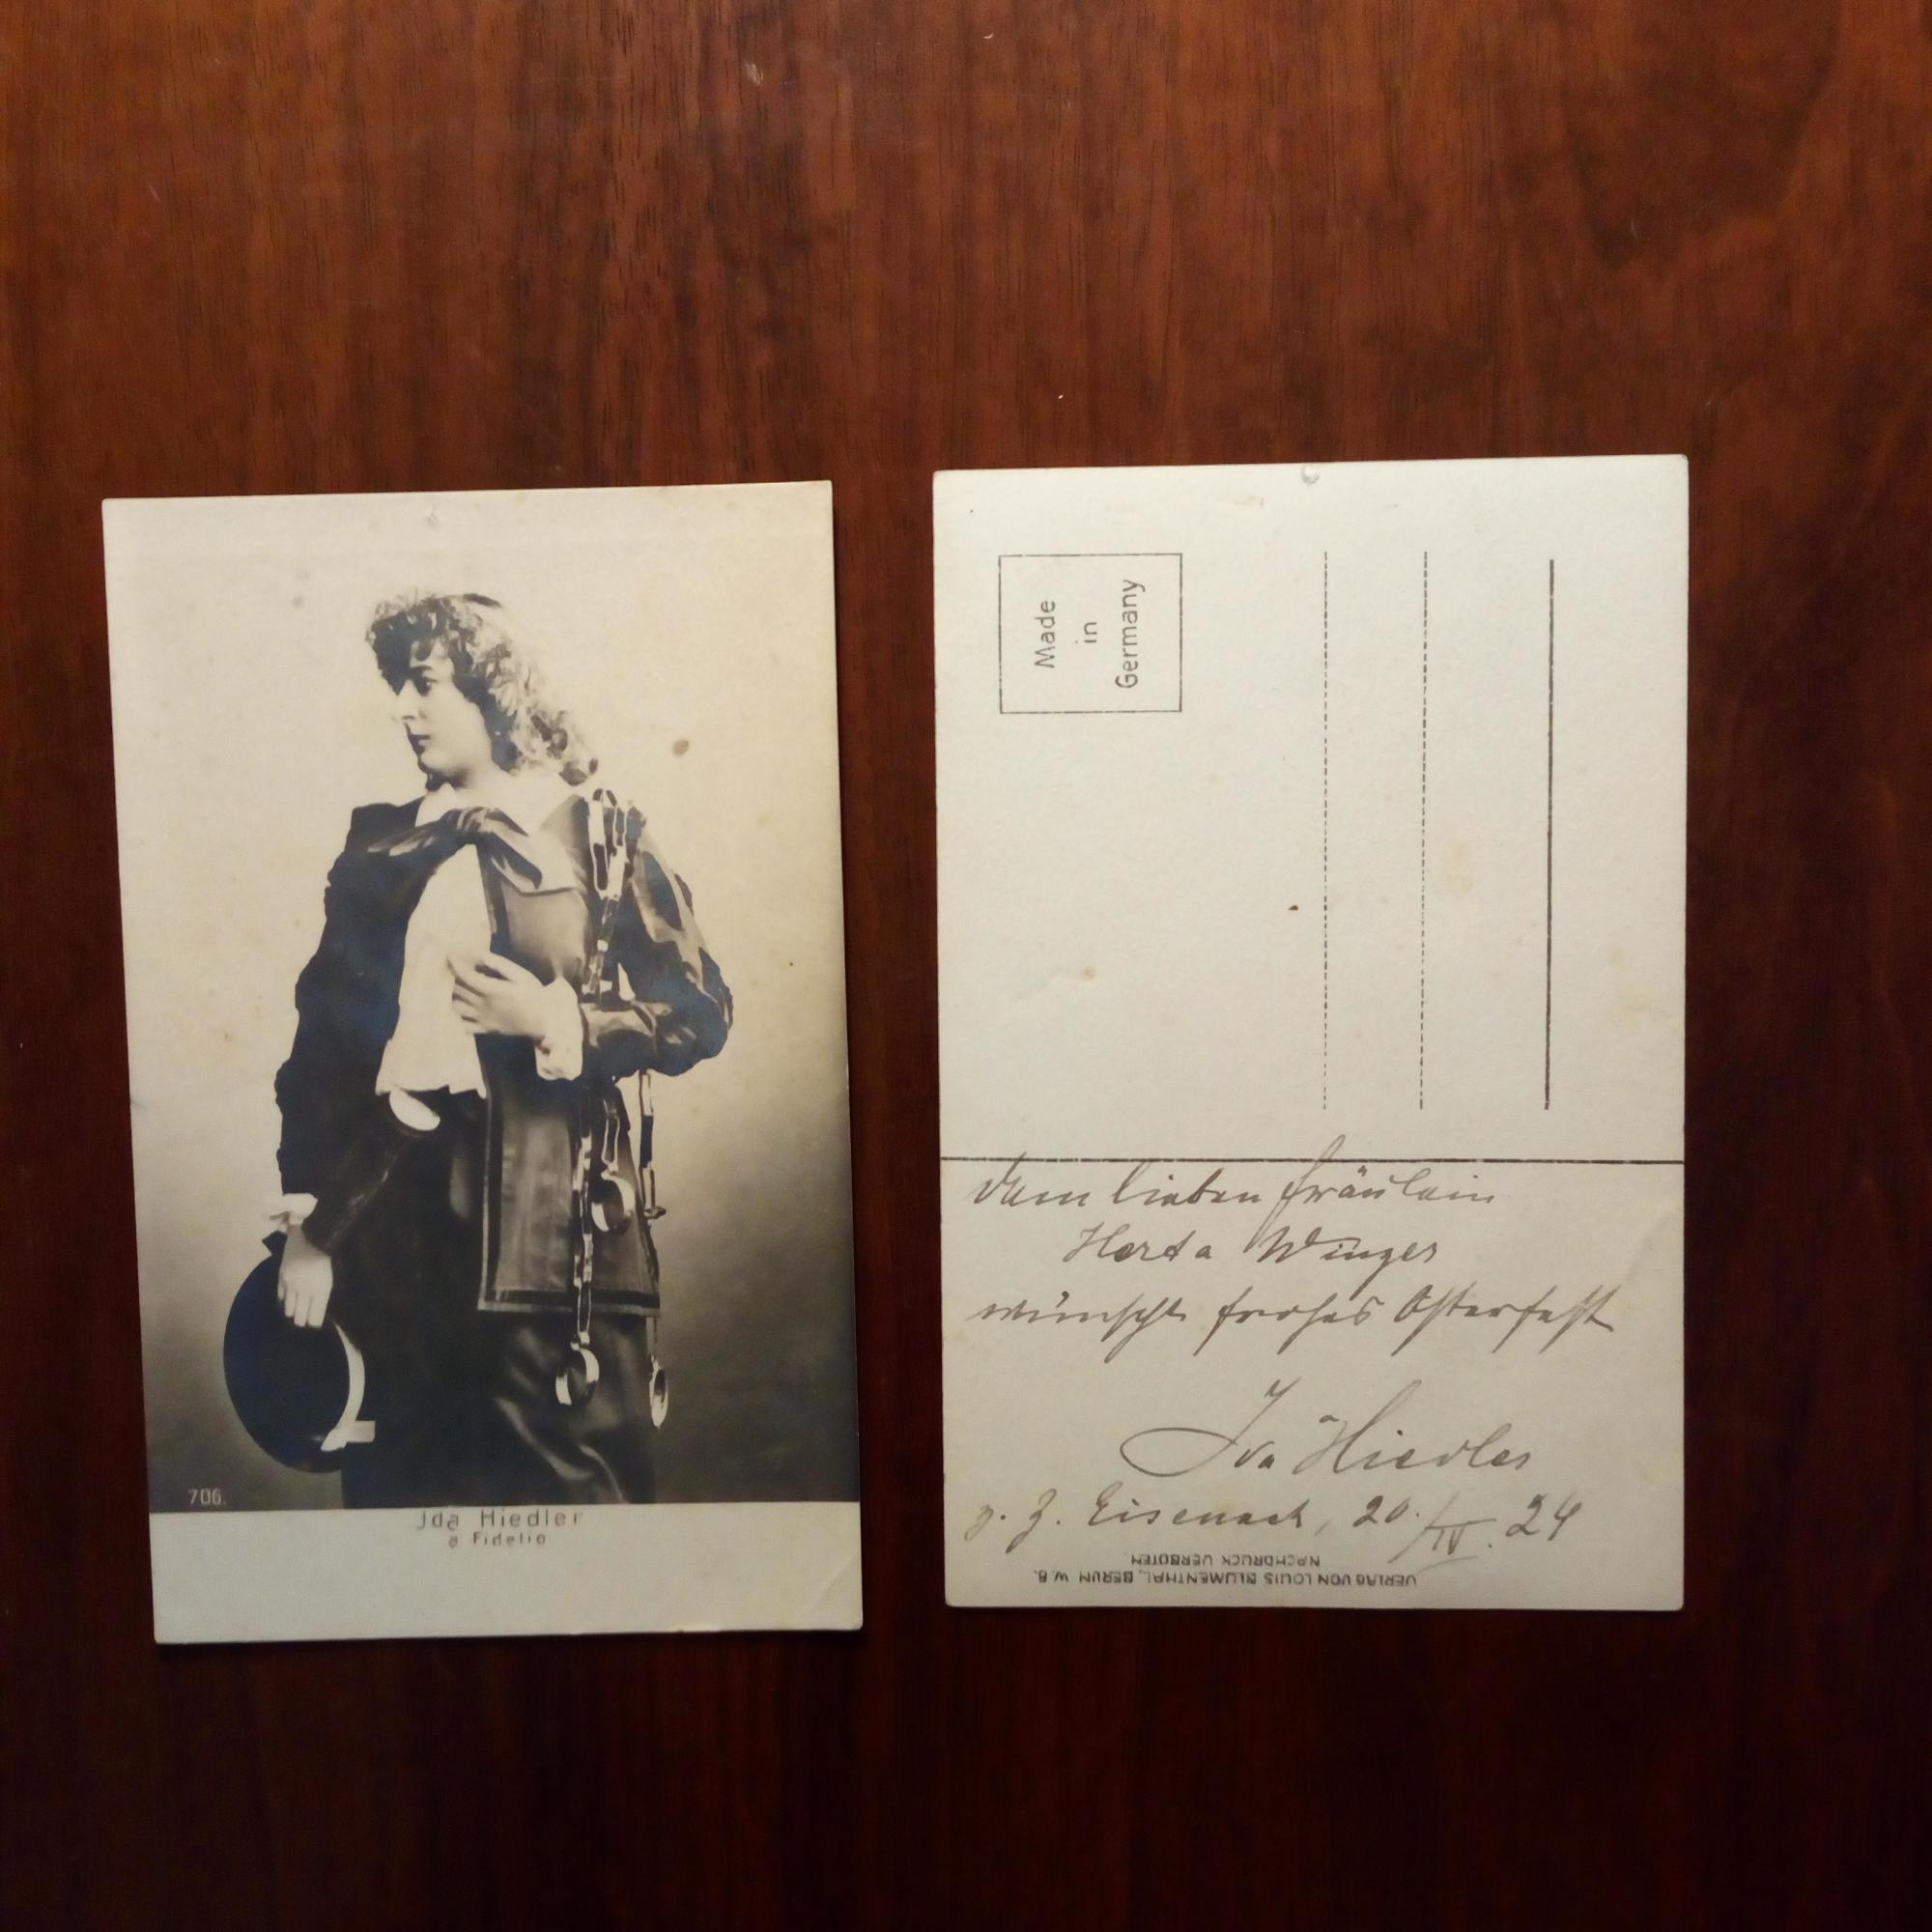 706.
Jda Hiedler
a Fidelio
Made
in
Germany
Dem lieben Fräulein
Herta Winzer
wünscht frohes Osterfest
Ida Hiedler
z. Z. Eisenach, 20./IV. 24
VERLAG VON LOUIS BLUMENTHAL, BERLIN W. 8.
NACHDRUCK VERBOTEN.